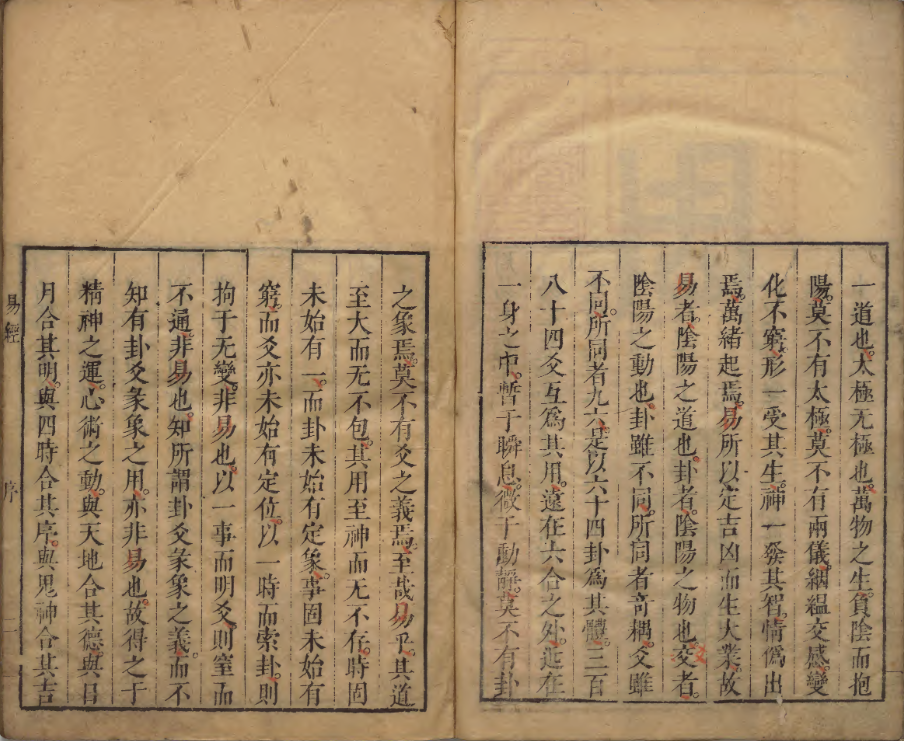 一道也。太極无極也。萬物之生。負陰而抱
陽。莫不有太極。莫不有兩儀。絪縕交感。變
化不窮。形一受其生。神一發其智。情僞出
焉。萬緒起焉。易所以定吉凶而生大業。故
易者。陰陽之道也。卦者。陰陽之物也。爻者。
陰陽之動也。卦雖不同。所同者奇耦。爻雖
不同。所同者九六。是以六十四卦爲其體。三百
八十四爻互爲其用。遠在六合之外。近在
一身之中。暫于瞬息。微于動靜。莫不有卦
之象焉。莫不有爻之義焉。至哉易乎。其道
至大而无不包。其用至神而无不存。時固
未始有一。而卦未始有定象。事固未始有
窮。而爻亦未始有定位。以一時而索卦。則
拘于无變。非易也。以一事而明爻。則窒而
不通。非易也。知所謂卦爻彖象之義。而不
知有卦爻彖象之用。亦非易也。故得之于
精神之運。心術之動。與天地合其德。與日
月合其明。與四時合其序。與鬼神合其吉
易經
序
二